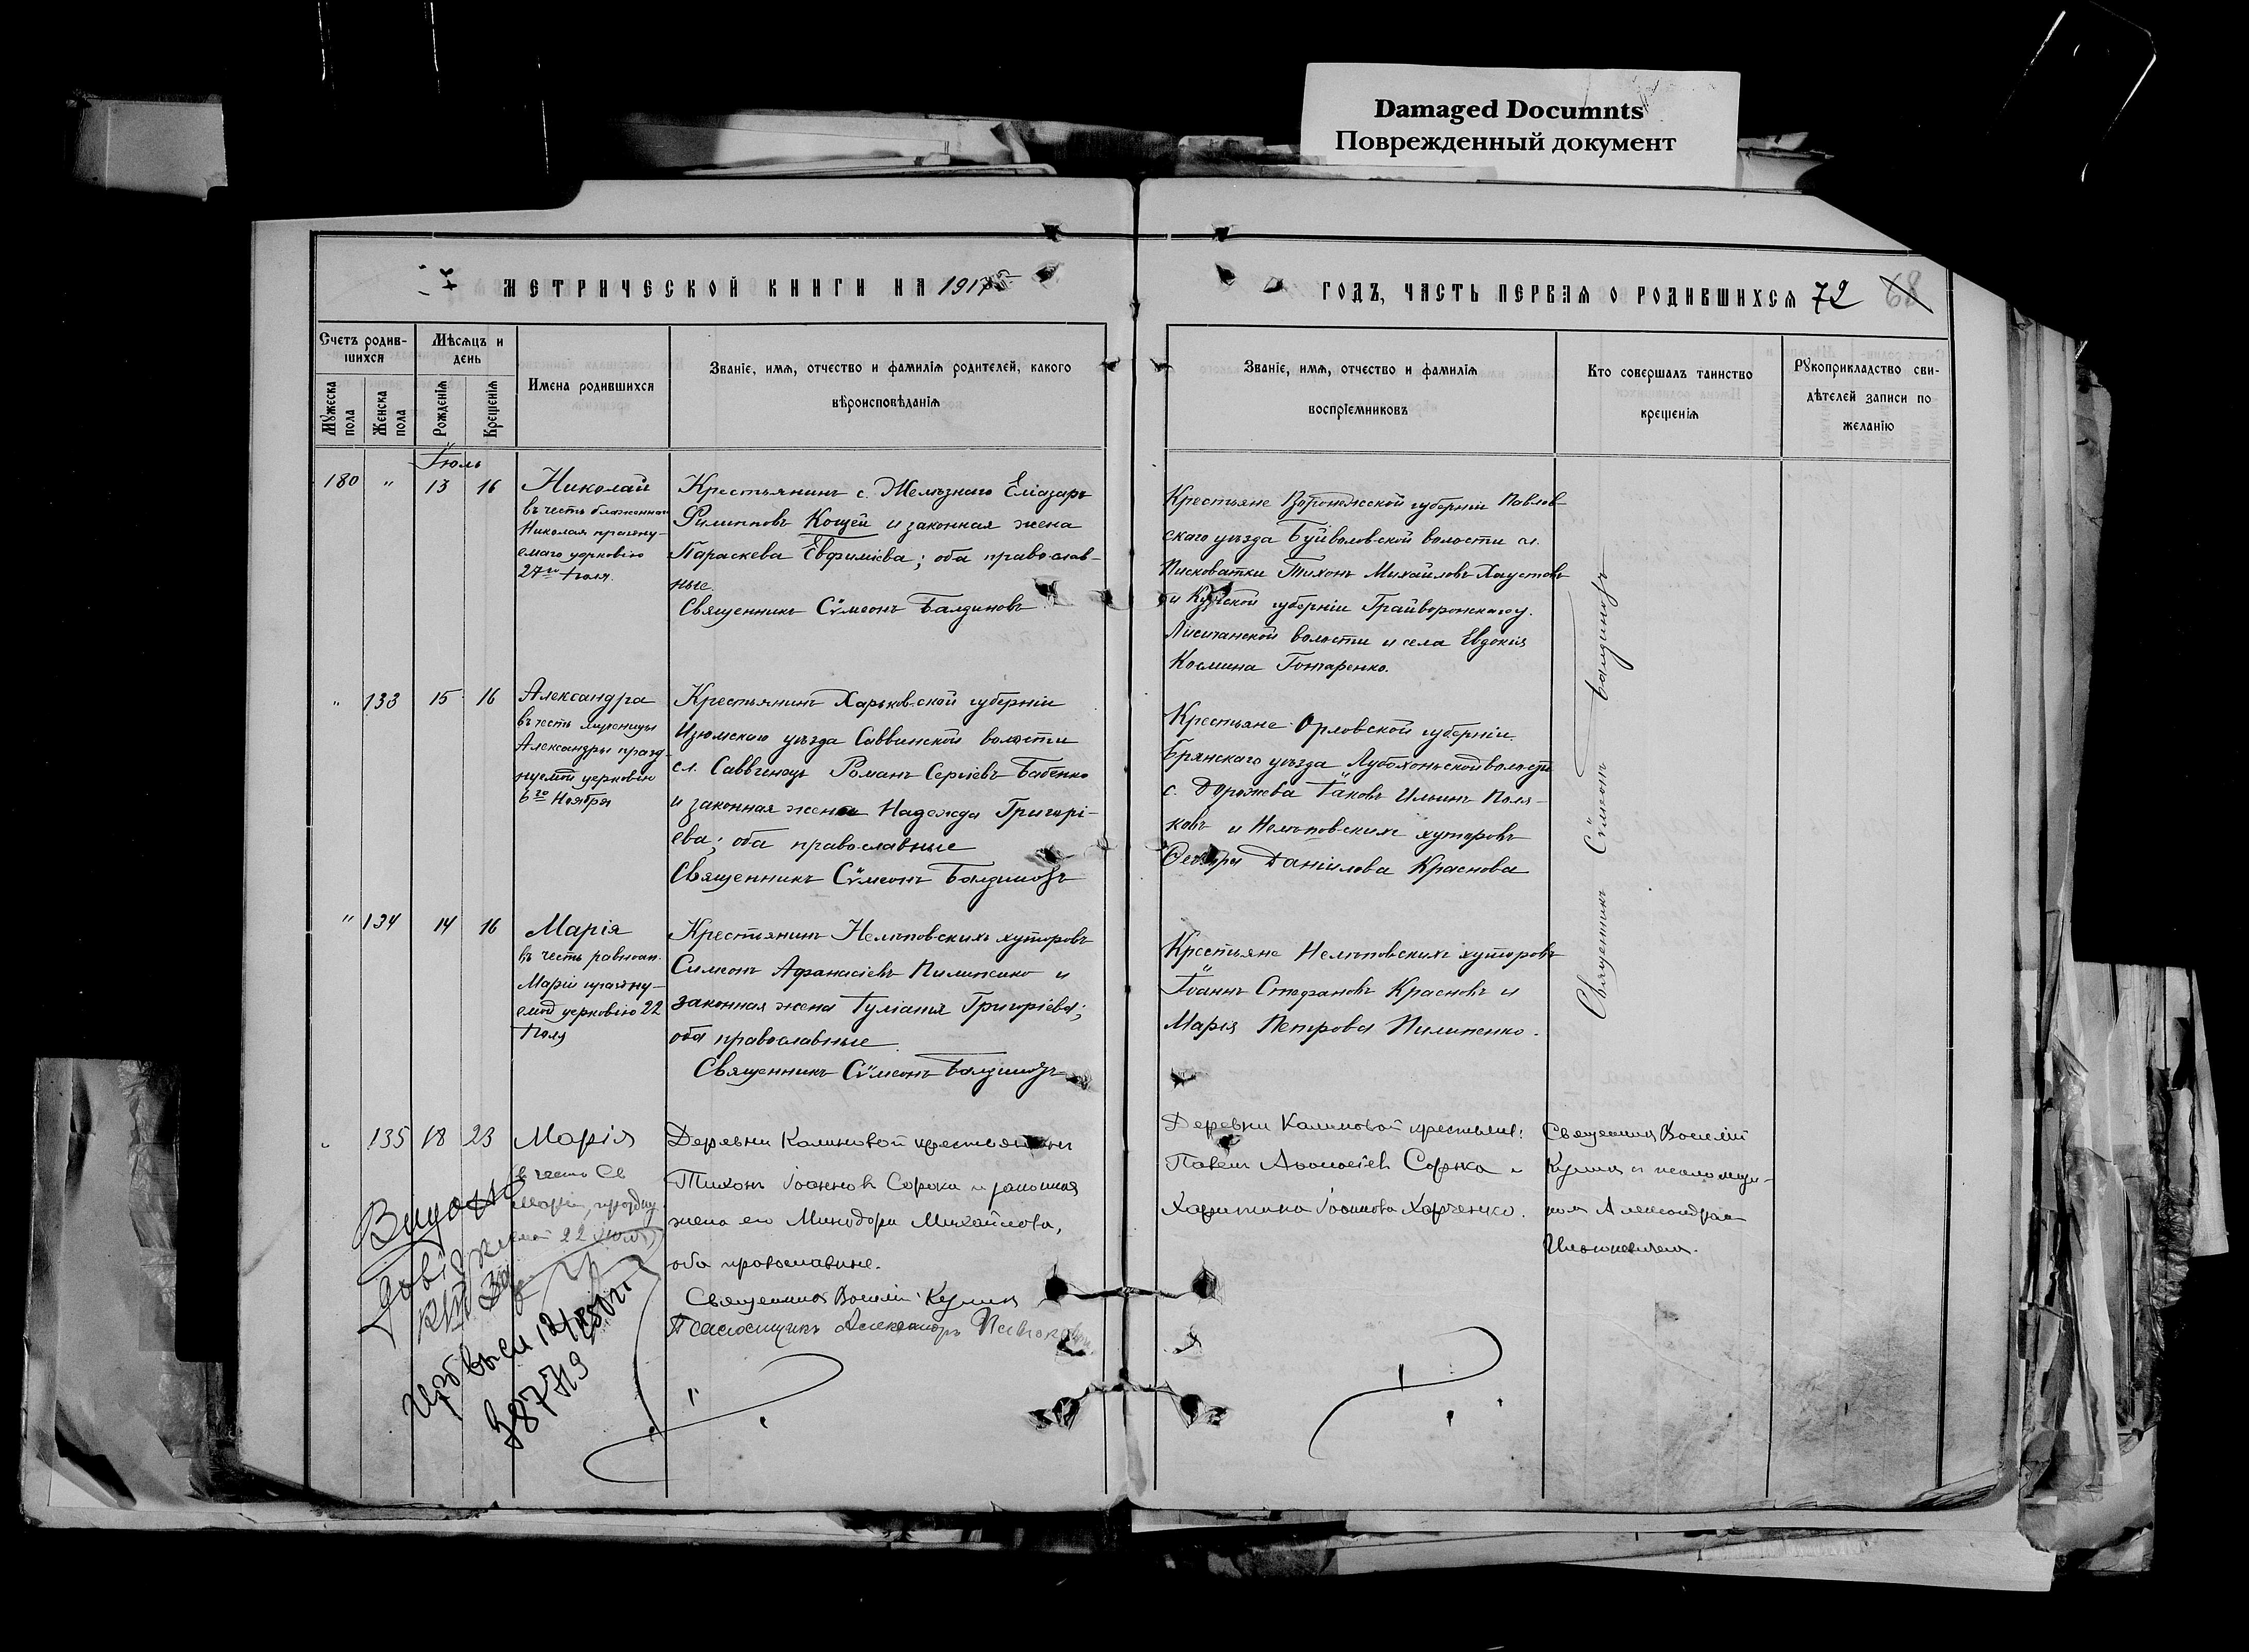 Damaged Documnts
Поврежденный документ
МЕТРИЧЕСКОЙ КНИГИ НА 1915
ГОДЪ, ЧАСТЬ ПЕРВАЯ О РОДИВШИХСЯ 72 68
Счетъ родив-
шихся
Мужеска пола
Женска пола
Мѣсяцъ и
день
Рожденія
Крещенія
Имена родившихся
Званіе, имя, отчество и фамилія родителей, какого
вѣроисповѣданія
Званіе, имя, отчество и фамилія
воспріемниковъ
Кто совершалъ таинство
крещенія
Рукоприкладство сви-
дѣтелей записи по
желанію
Іюль
180 " 13 16
Николай
въ честь блаженнаго
Николая праздну-
емаго церковію
27го Іюля.
Крестьянинъ с. Желѣзнаго Еліазаръ
Филипповъ Кощей и законная жена
Параскева Евфиміева; оба православ-
ные.
Священникъ Сѵмеонъ Балдиновъ
Крестьяне Воронежской губерніи Павлов
скаго уѣзда Буйволовской волости сл.
Писковатки Тихонъ Михайловъ Хаустовъ
и Курской губерніи Грайворонскаго у.
Лисичанской волости и села Евдокія
Космина Гонтаренко.
" 133 15 16
Александра
въ честь мученицы
Александры празд-
нуемой церковію
6го Ноября
Крестьянинъ Харьковской губерніи
Изюмскаго уѣзда Саввинской волости
сл. Саввинецъ Романъ Сергіевъ Бабенко
и законная жена Надежда Григорі-
ева; оба православные
Священникъ Сѵмеонъ Балдиновъ
Крестьяне Орловской губерніи
Брянскаго уѣзда Лубохонской волости
с. Дорожева Іаковъ Ильинъ Поля-
ковъ и Нелѣповскихъ хуторовъ
Даніилова Краснова
" 134 14 16
Марія
въ честь равноап.
Маріи праздну-
емой церковію 22
Іюля
Крестьянинъ Нелѣповскихъ хуторовъ
Симеонъ Афанасіевъ Пилипенко и
законная жена Іуліанія Григоріева;
оба православные.
Священникъ Сѵмеонъ Балдиновъ
Крестьяне Нелѣповскихъ хуторовъ
Іоаннъ Стефановъ Красновъ и
Марія Петрова Пилипенко.
Священникъ Сѵмеонъ Балдиновъ
" 135 18 23
Марія
в честь Св
Маріи, праздну
емой 22 Іюля
Деревни Калиновой крестьянинъ
Тихонъ Іоанновъ Сорока и законная
жена его Минодора Михайлова,
оба православные.
Священникъ Василій
Псаломщикъ Александръ
Деревни Калиновой крестьяне:
Павелъ Сорока и
Харитина Іоаннова Харченко.
Священникъ Василій
псаломщи-
комъ Александромъ
Видано